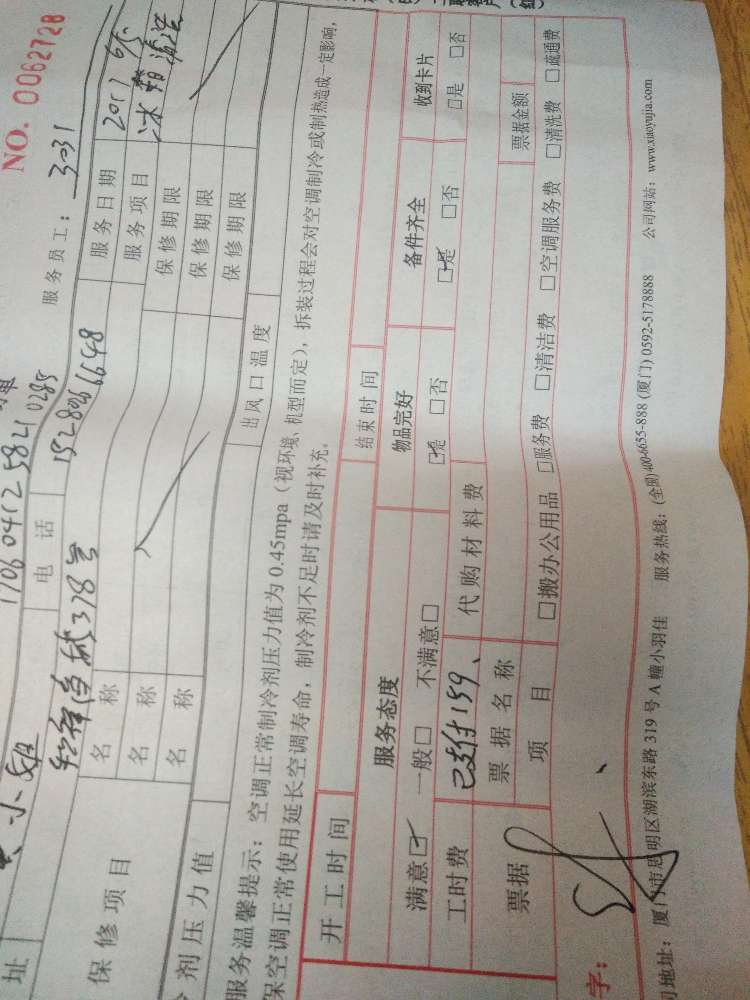 NO. 0062728
1706 0412 5821 0285
服务员工：3031
址 电话 15280266648
服务日期 2017 6/5
服务项目 冰箱清洗
保修项目 名称 保修期限
名称 保修期限
名称 保修期限
剂压力值 出风口温度
服务温馨提示：空调正常制冷剂压力值为0.45mpa（视环境、机型而定），拆装过程会对空调制冷或制热造成一定影响，
保空调正常使用延长空调寿命，制冷剂不足时请及时补充。
开工时间 结束时间
服务态度 物品完好 备件齐全 收到卡片
满意☑ 一般□ 不满意□ ☑是 □否 ☑是 □否 □是 □否
工时费 已支付159、 代购材料费
票据 票据名称 票据金额
项目 □搬办公用品 □服务费 □清洁费 □空调服务费 □清洗费 □疏通费
字：
地址：厦门市思明区湖滨东路319号A幢小羽佳 服务热线：(全国)400-6655-888 (厦门)0592-5178888 公司网站：www.xiaoyujia.com